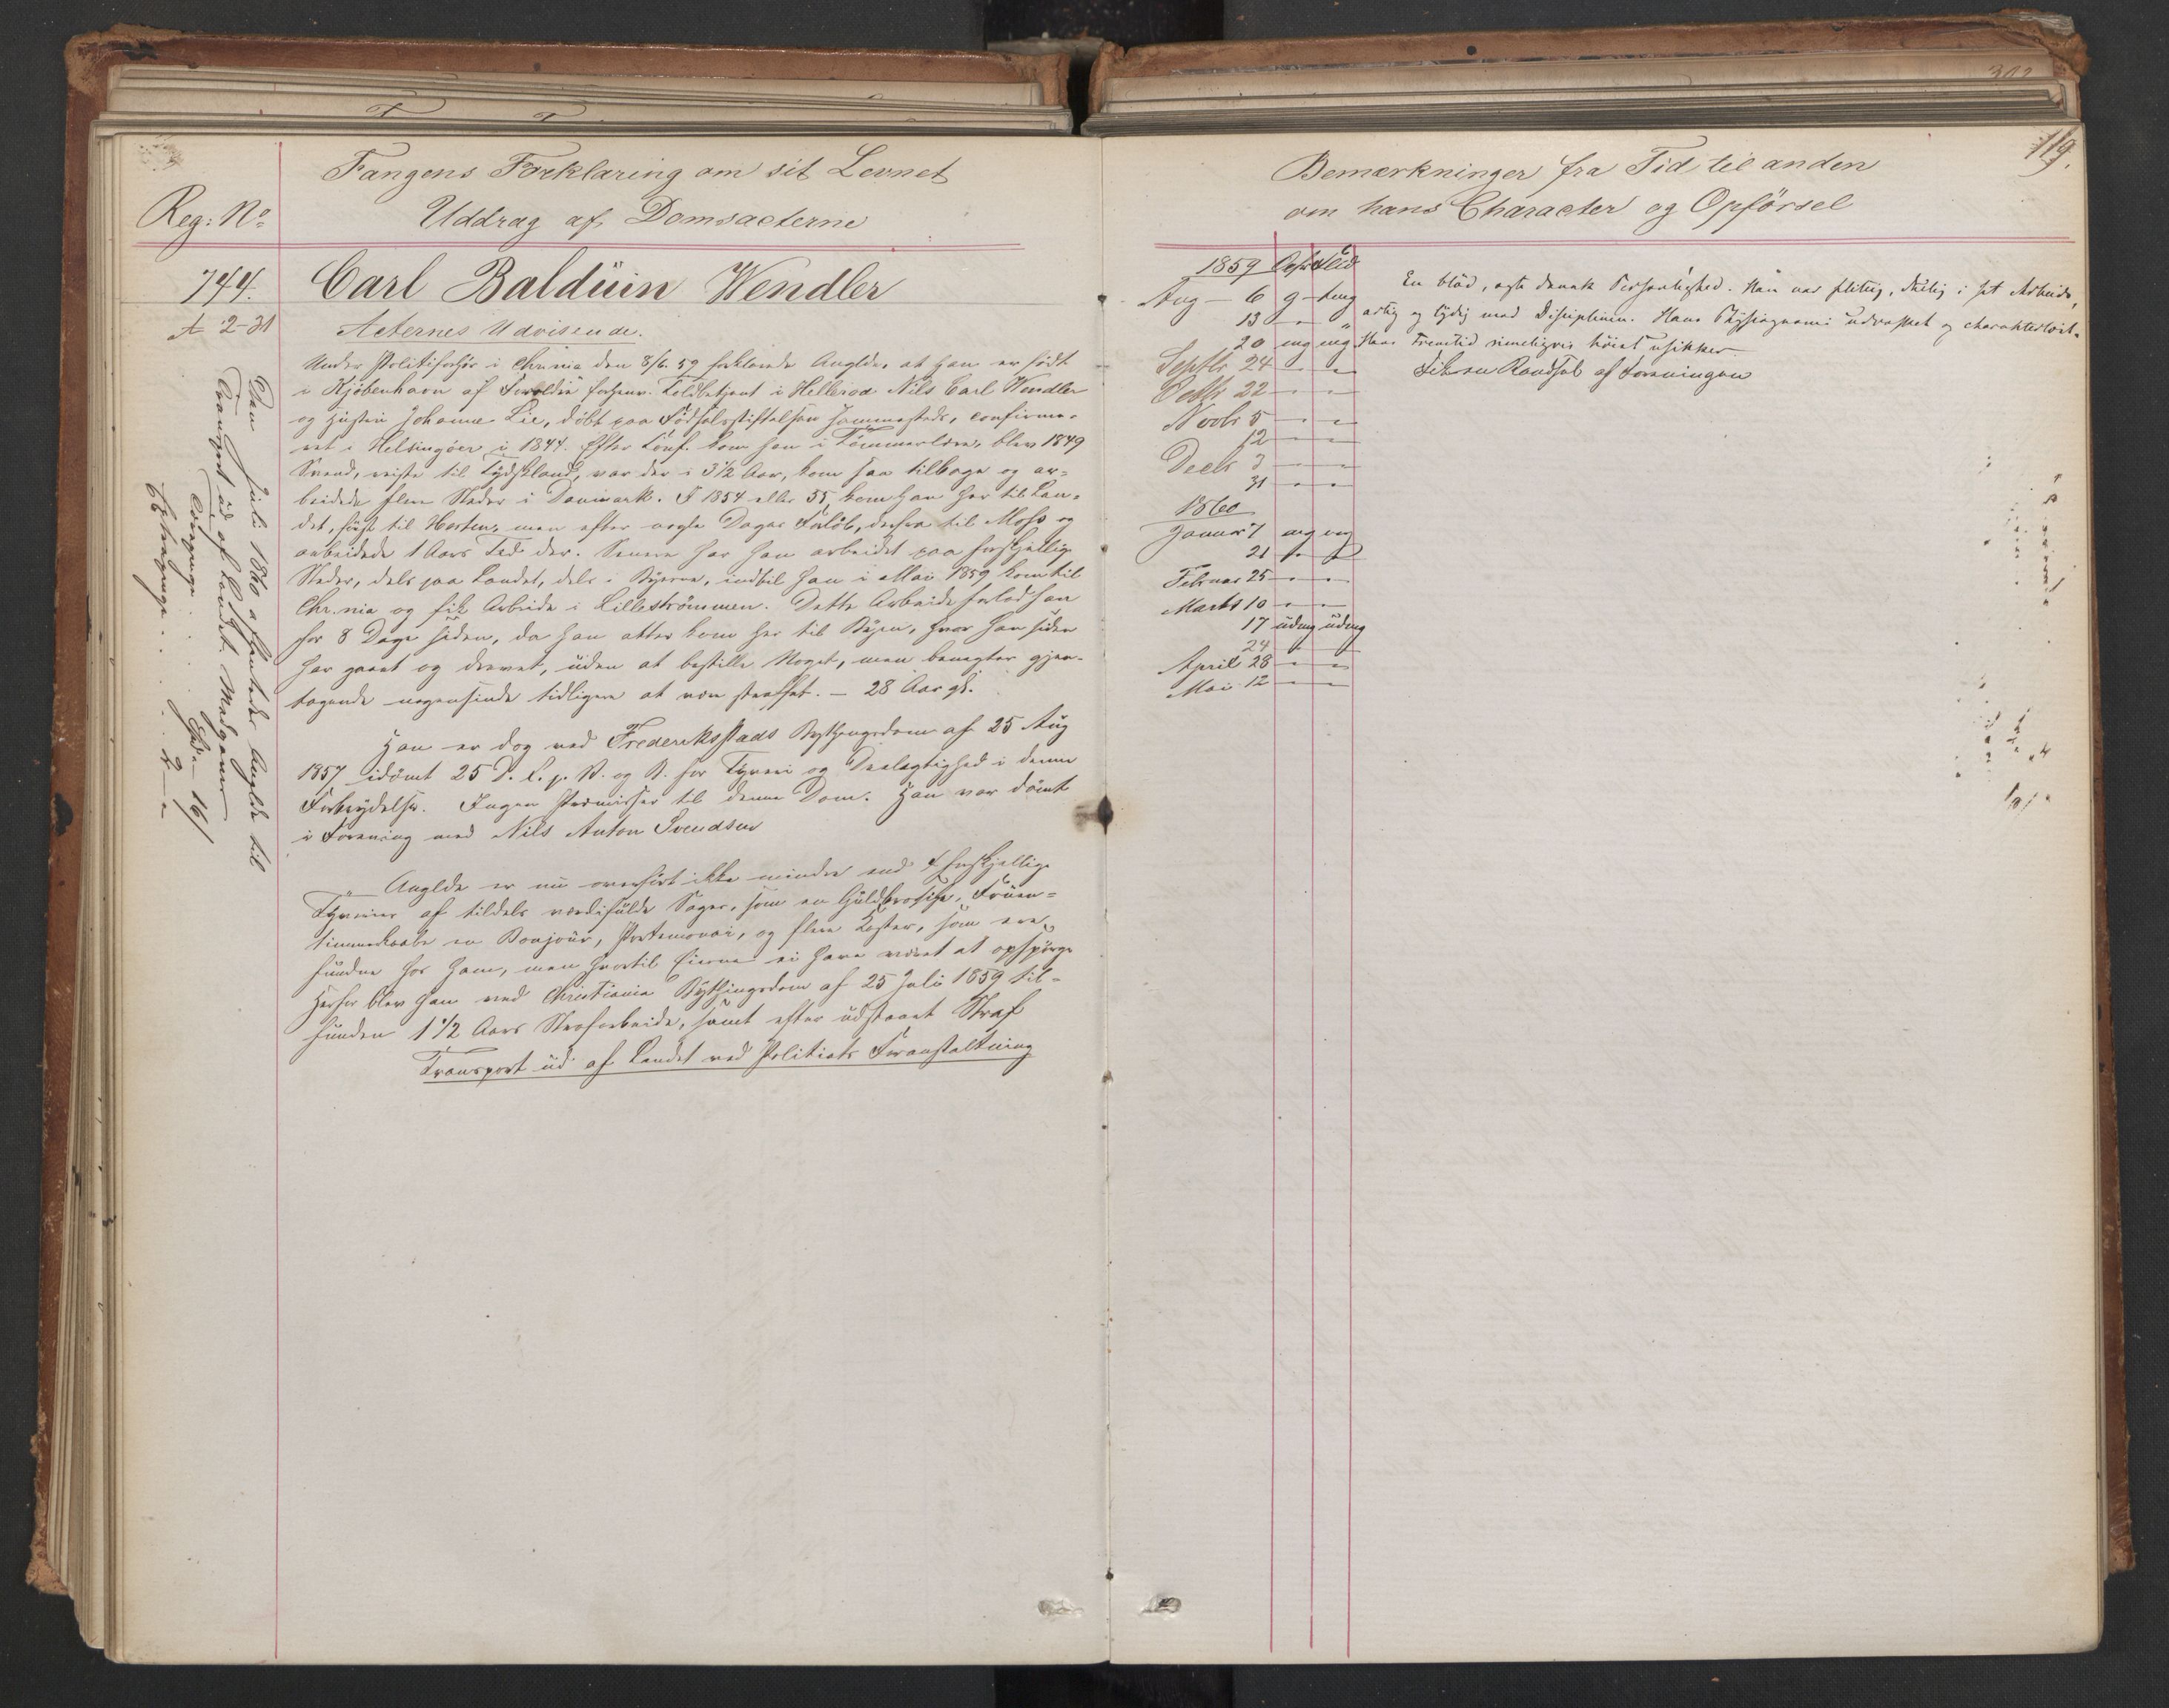 Fangens Forklaring om sit Levnet
Reg: No
Uddrag af Domsacterne
744.
Carl Balduin Wendler
A 2-31
Acternes Udvisende.
Under Politiforhør i Chr.nia den 8/6 59 forklarede Anglde, at han er født
i Kjöbenhavn af Forældre forhenv. Toldbetjent i Nils Carl Wendler
og Hustru Johanne Lie, döbt paa Födselsstiftelsen sammesteds, confirme-
ret i Helsingöer i 1844. Efter Conf. kom han i Tömmerlære, blev 1849
Svend, reiste til Tydskland, var der i 3 1/2 Aar, kom saa tilbage og ar-
beidede flere Steder i Danmark. I 1854 eller 55 kom han her til Lan-
det, först til Horten, men efter nogle Dages Forlöb, derfra til Moss og
arbeidede 1 Aars Tid der. Senere har han arbeidet paa forskjellige
Steder, dels paa Landet, dels i Byerne, indtil han i Mai 1859 kom til
Chr.nia og fik Arbeide i Lilleströmmen. Dette Arbeide forlod han
for 8 Dage siden, da han atter kom her til Byen, hvor han siden
har gaaet og drevet, uden at bestille Noget, men benegter gjen-
tagende nogensinde tidligere at være straffet. – 28 Aar gl.
Han er dog ved Frederiksstads Bythingsdom af 25 Aug
1857 idömt 25 D. F. p. V. og B. for Tyveri og Deelagtighed i denne
Forbrydelse. Ingen Præmisser til denne Dom. Han var dömt
i Forening med Nils Anton Svendsen
Anglde er nu overfört ikke mindre end forskjellige
Tyverier af tildels værdifulde Sager, som en Guldbroche, Fruen-
timmerkaabe en Bonjour, Portemonai, og flere Koster, som ere
fundne hos ham, men hvortil Eierne ei have været at opspörge
Herfor blev han ved Christiania Bythingsdom af 25 Juli 1859 til-
funden 1 1/2 Aars Strafarbeide, samt efter udstaaet Straf
Transport ud af Landet ved Politiets Foranstaltning
Den Juli 1860 afhentedes Anglde til
Transport ud af Landet. Medgaver
Overspenge . . . Spd. – 16/
. . . 2 – "
Bemærkninger fra Tid til anden
om hans Character og Opförsel
119.
1859 Opf Flid
Aug – 6 g – tmg
13 – "
20 mg mg
Septbr 24 – " – "
Octbr 22 – " – "
Novbr 5 – " – "
12 – " – "
Decbr 3 – " – "
31 – " – "
1860
Januar 7 mg mg
21 – " – "
Februar 25 – " – "
Marts 10 – " – "
17 udmg udmg
24 – " – "
April 28 – " – "
Mai 12 – " – "
En blöd, ægte dansk Personlighed. Han var flittig, dulig i sit Arbeide,
artig og lydig mod Disciplinen. Hans Physiognomi udvasket og charakterlöst.
Hans Fremtid rimeligvis höiest usikker.
Fik en Randsel af Foreningen